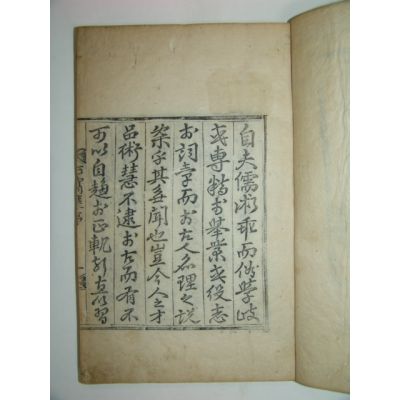 自夫儒術乖而俗學歧
或專精於舉業或役志
於詞章而於古人名理之說
寥乎其無聞也豈今人之才
品術慧不逮於古而有不
可以自趨於正軌哉直以習